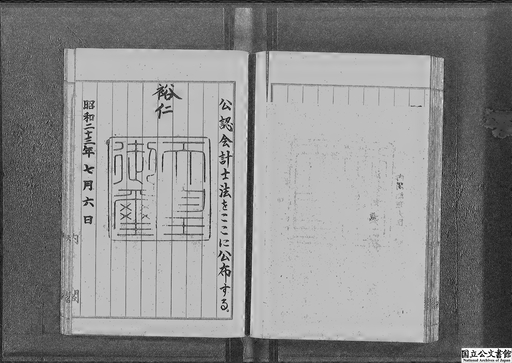 公認会計士法をここに公布する。
裕仁
天皇
御璽
昭和二十三年七月六日
内閣
国立公文書館
National Archives of Japan